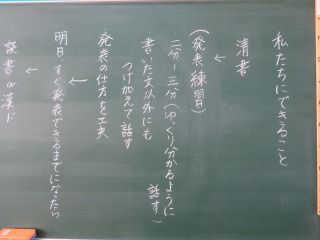 私たちにできること
清書
↓
(発表練習)
二分～三分(ゆっくり分かるように
話す)
書いた文以外にも
つけ加えて話す
発表の仕方を工夫
↓
明日 すぐ発表できるまでになったら
↓
読書or漢ド